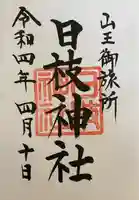 山王御旅所
日枝神社
令和四年 四月十日